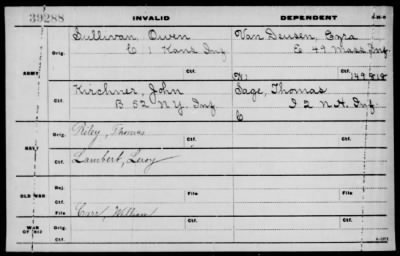 39288 INVALID DEPENDENT
Sullivan, Owen Van Deusen, Ezra
Orig. E 1 Kans Inf E 49 Mass Inf
ARMY
Ctf. 149818
Kirchner, John Sage, Thomas
Orig. B 52 N.Y. Inf I 2 N.H. Inf
Ctf. C
Orig. Riley, Thomas Orig.
NAVY
Ctf. Lambert, Leroy Ctf.
Rej.
OLD WAR File
Ctf.
File Carr, William Ctf.
WAR OF 1812
Ctf.